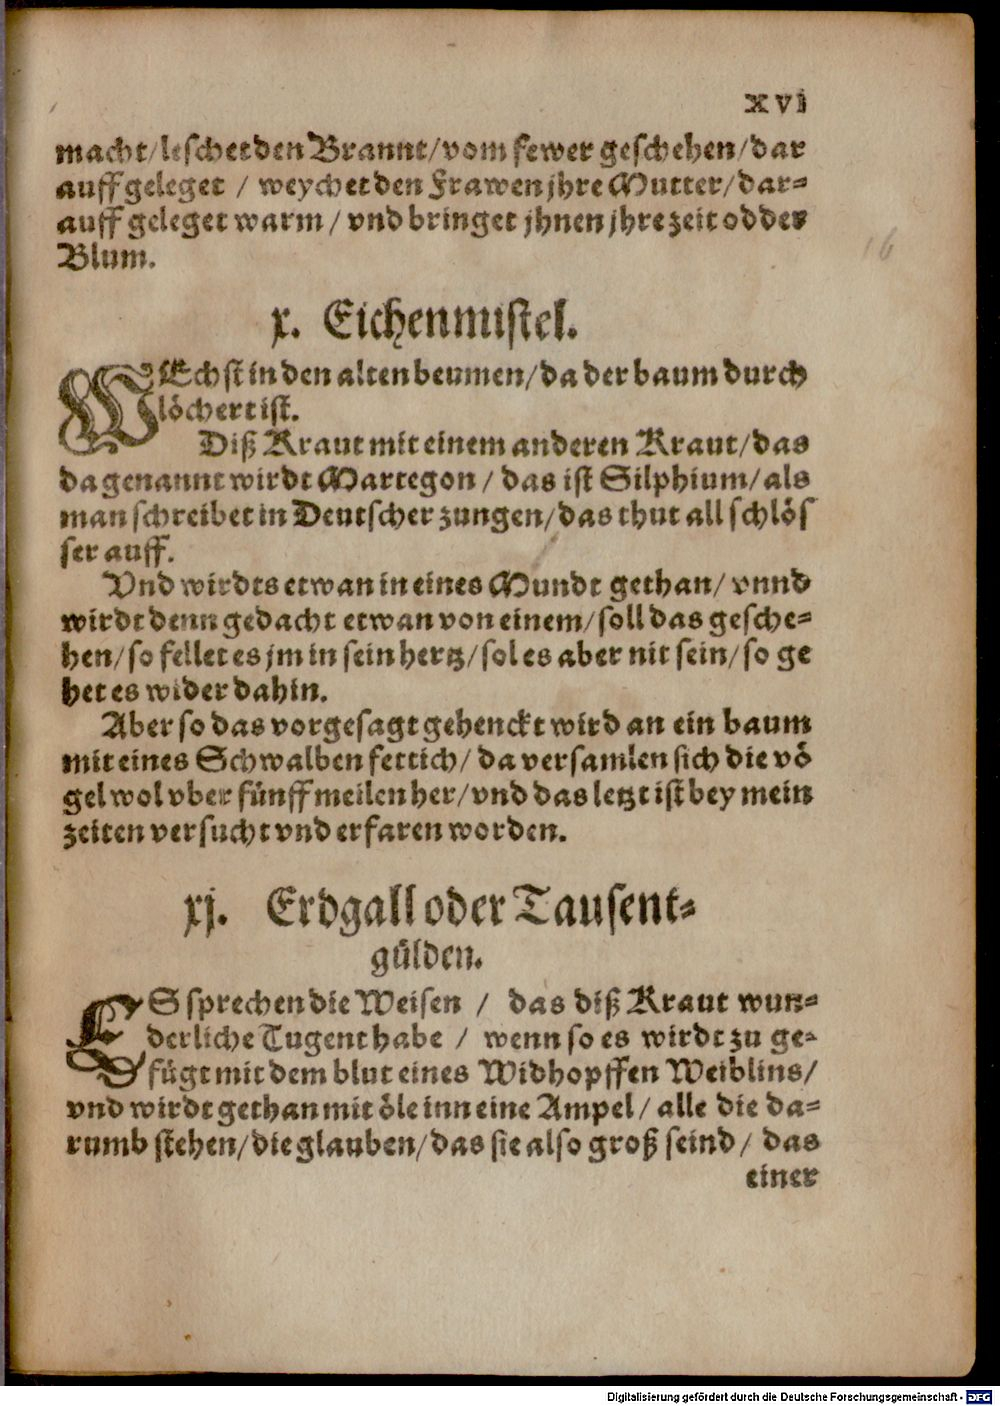 xvi
macht/leschet den Brannt/vom fewer geschehen/dar
auff geleget / weychet den Frawen jhre Mutter/dar=
auff geleget warm / vnd bringet jhnen jhre zeit odder
Blum.
16
x. Eichenmistel.
WEchst in den alten beumen/da der baum durch
löchert ist.
Diß Kraut mit einem anderen Kraut/das
da genannt wirdt Martegon / das ist Silphium/als
man schreibet in Deutscher zungen/das thut all schlös
ser auff.
Vnd wirdts etwan in eines Mundt gethan/ vnnd
wirdt denn gedacht etwan von einem/soll das gesche=
hen/so fellet es jm in sein hertz/sol es aber nit sein/so ge
het es wider dahin.
Aber so das vorgesagt gehenckt wird an ein baum
mit eines Schwalben fettich/da versamlen sich die vö
gel wol vber fünff meilen her/vnd das letzt ist bey mein
zeiten versucht vnd erfaren worden.
xj. Erdgall oder Tausent=
gülden.
ES sprechen die Weisen / das diß Kraut wun=
derliche Tugent habe / wenn so es wirdt zu ge=
fügt mit dem blut eines Widhopffen Weiblins/
vnd wirdt gethan mit öle inn eine Ampel/ alle die da=
rumb stehen/die glauben/das sie also groß seind/ das
einer
Digitalisierung gefördert durch die Deutsche Forschungsgemeinschaft - DFG